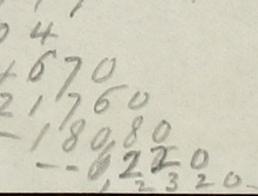 0 4
4 6 7 0
2 1 7 6 0
- 1 8 0 8 0
- - 6 2 2 0
1 2 3 2 0 -